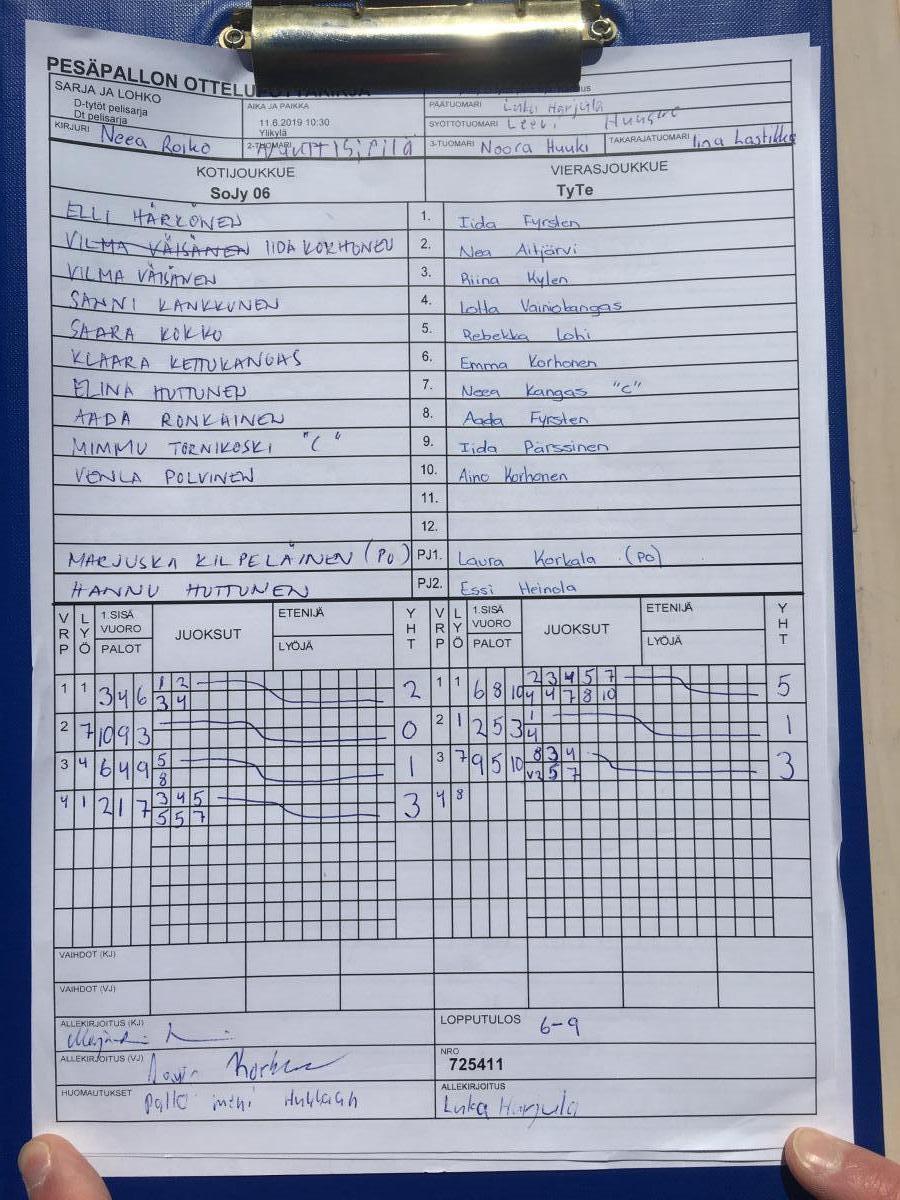 PESÄPALLON OTTELUPÖYTÄKIRJA
SARJA JA LOHKO
D-tytöt pelisarja
Dt pelisarja
AIKA JA PAIKKA
11.6.2019 10:30
Ylikylä
PÄÄTUOMARI Luka Harjula
SYÖTTÖTUOMARI Leevi
KIRJURI Neea Roiko
2-TUOMARI
3-TUOMARI Noora Huuki
TAKARAJATUOMARI Iina Lastikka
KOTIJOUKKUE VIERASJOUKKUE
SoJy 06 TyTe
ELLI HÄRKÖNEN 1. Iida Fyrsten
VILMA VÄISÄNEN IIDA KORHONEN 2. Nea Aitjärvi
VILMA VÄISÄNEN 3. Riina Kylen
SANNI KANKKUNEN 4. Lotta Vainiokangas
SAARA KOKKO 5. Rebekka Lohi
KLAARA KETTUKANGAS 6. Emma Korhonen
ELINA HUTTUNEN 7. Neea Kangas "C"
AADA RONKAINEN 8. Aada Fyrsten
MIMMU TORNIKOSKI "C" 9. Iida Pärssinen
VENLA POLVINEN 10. Aino Korhonen
11.
12.
MARJUSKA KILPELÄINEN (PO) PJ1. Laura Korkala (PO)
HANNU HUTTUNEN PJ2. Essi Heinola
VRP LYÖ 1.SISÄ VUORO PALOT JUOKSUT ETENIJÄ LYÖJÄ YHT VRP LYÖ 1.SISÄ VUORO PALOT JUOKSUT ETENIJÄ LYÖJÄ YHT
1 1 3 4 6 1 2 2 1 1 6 8 10 2 3 4 5 7 5
3 4 4 4 7 8 10
2 7 10 9 3 0 2 1 2 5 3 1 1
4
3 4 6 4 9 5 1 3 7 9 5 10 8 3 4 3
8 V2 5 7
4 1 2 1 7 3 4 5 3 4 8
5 5 7
VAIHDOT (KJ)
VAIHDOT (VJ)
ALLEKIRJOITUS (KJ)
LOPPUTULOS 6-9
ALLEKIRJOITUS (VJ)
NRO
725411
HUOMAUTUKSET Pallo meni Hukkaan
ALLEKIRJOITUS
Luka Harjula